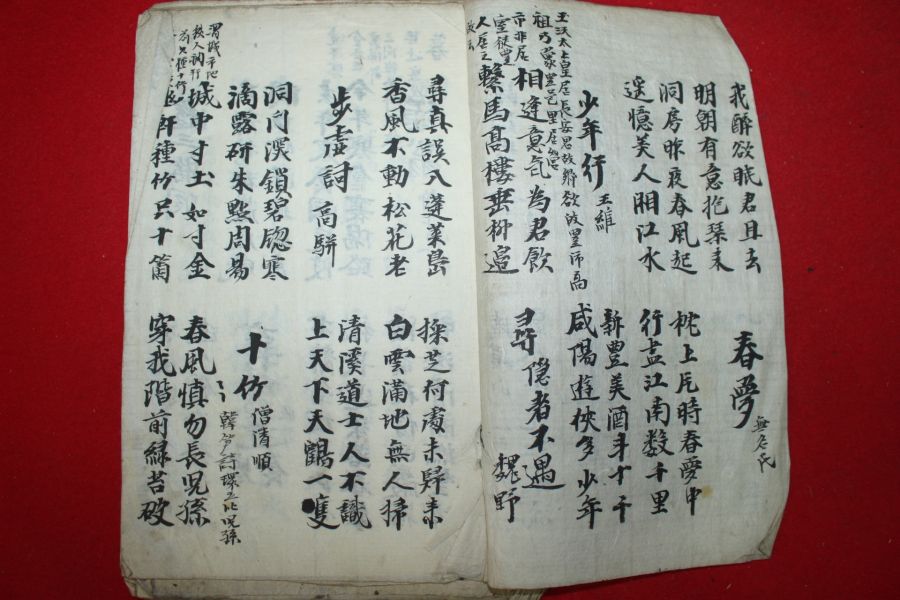 我醉欲眠君且去
明朝有意抱琴来
春夢 無名氏
洞房昨夜春風起
枕上片時春夢中
遥憶美人湘江水
行盡江南数千里
少年行 王維
新豊美酒斗十千
咸陽遊俠多少年
太上皇居長安思故鄉欲
相逢意氣為君飲
繫馬高樓垂柳邉
尋隱者不遇 魏野
尋真誤入蓬莱島
採芝何處未歸来
香風不動松花老
白雲滿地無人掃
步虛詞 高駢
清溪道士人不識
上天下天鶴一隻
洞門深鎖碧窓寒
滴露研朱點周易
十竹 僧清順
城中寸土如寸金
軒種竹只十箇
春風慎勿長児孫
穿我階前緑苔破